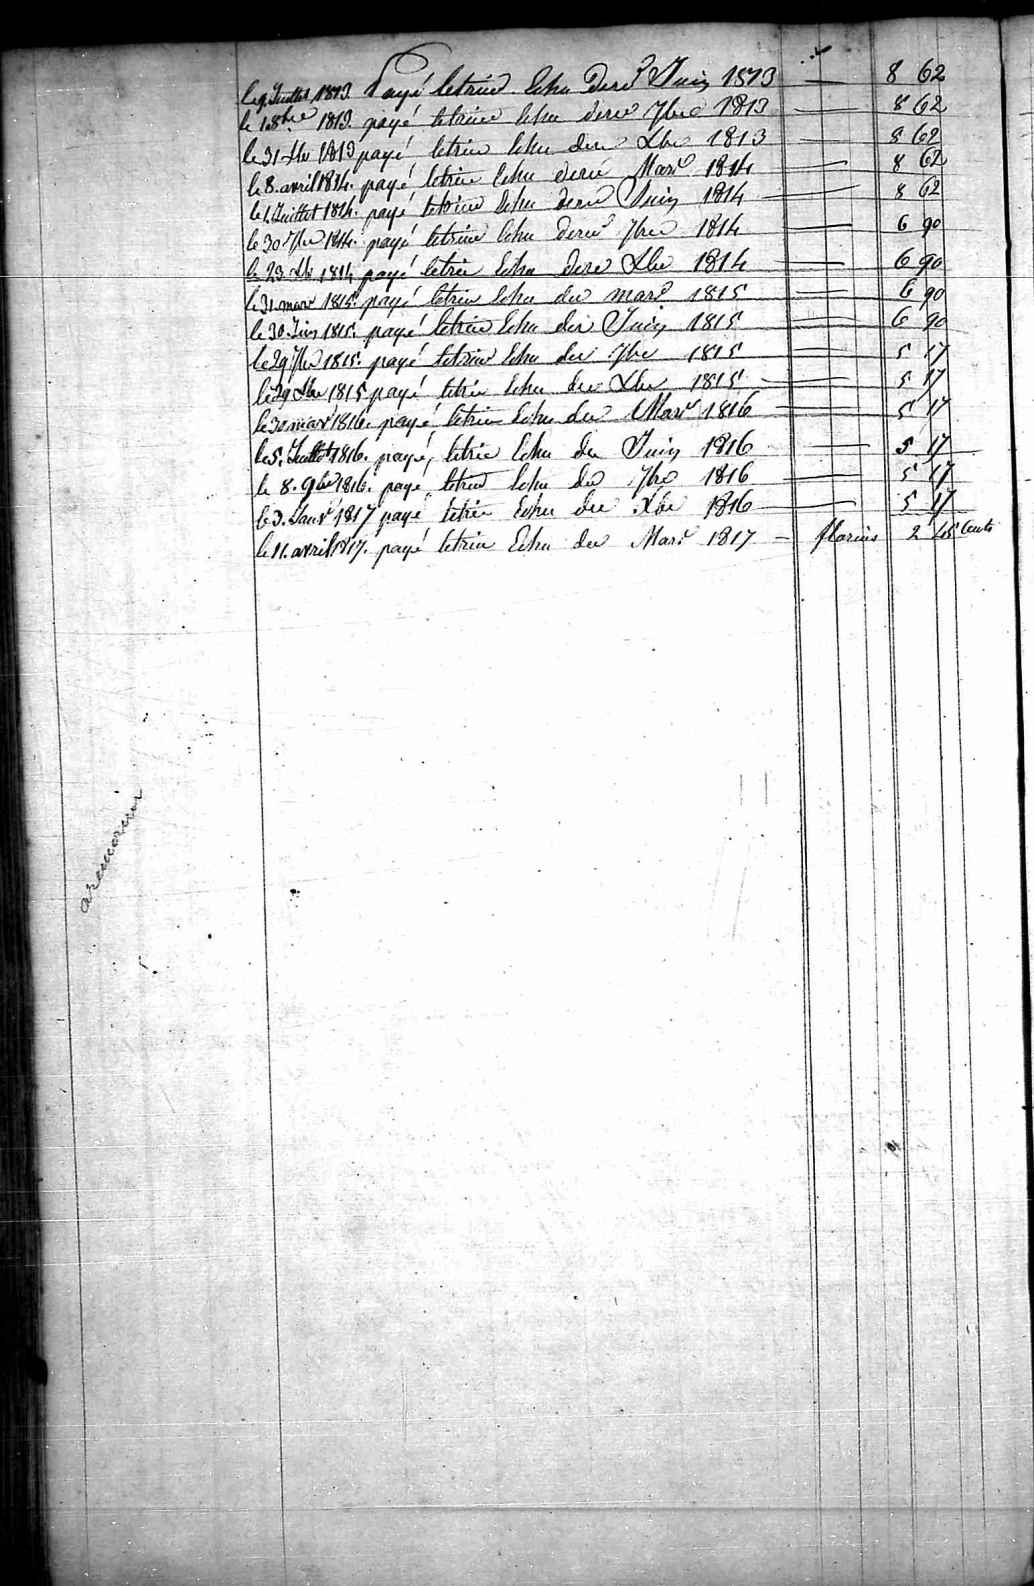 le 9. Juillet 1813. Payé letrim Echu Dere Juin 1813 — 8 62
le 1. 8bre 1813. payé letrim Echu dere 7bre 1813 — 8 62
le 31 Xbr 1813 payé letrim Echu dere Xbre 1813 8 62
le 8. avril 1814. payé letrim Echu dere Mars 1814 — 8 62
le 1. Juillet 1814. payé letrim Echu dere Juin 1814 — 8 62
le 30 7bre 1814. payé letrim Echu dere 7bre 1814 — 6 90
le 23 Xbr 1814 payé letrim Echu dere Xbre 1814 — 6 90
le 31. mars 1815. payé letrim Echu der mars 1815 — 6 90
le 30. Juin 1815. payé letrim Echu der Juin 1815 — 6 90
le 29 7bre 1815. payé letrim Echu der 7bre 1815 — 5 17
le 29 Xbre 1815 payé letrim Echu der Xbre 1815 — 5 17
le 30 mars 1816. payé letrim Echu der Mars 1816 — 5 17
le 5. Juillet 1816. payé, letrim Echu der Juin 1816 — 5 17
le 8. 9bre 1816. payé letrim Echu der 7bre 1816 — 5 17
le 3. Janvr 1817 payé letrim Echu der Xbre 1816 — 5 17
le 11. avril 1817. payé letrim Echu der Mars 1817 — florins 2 45 Cents